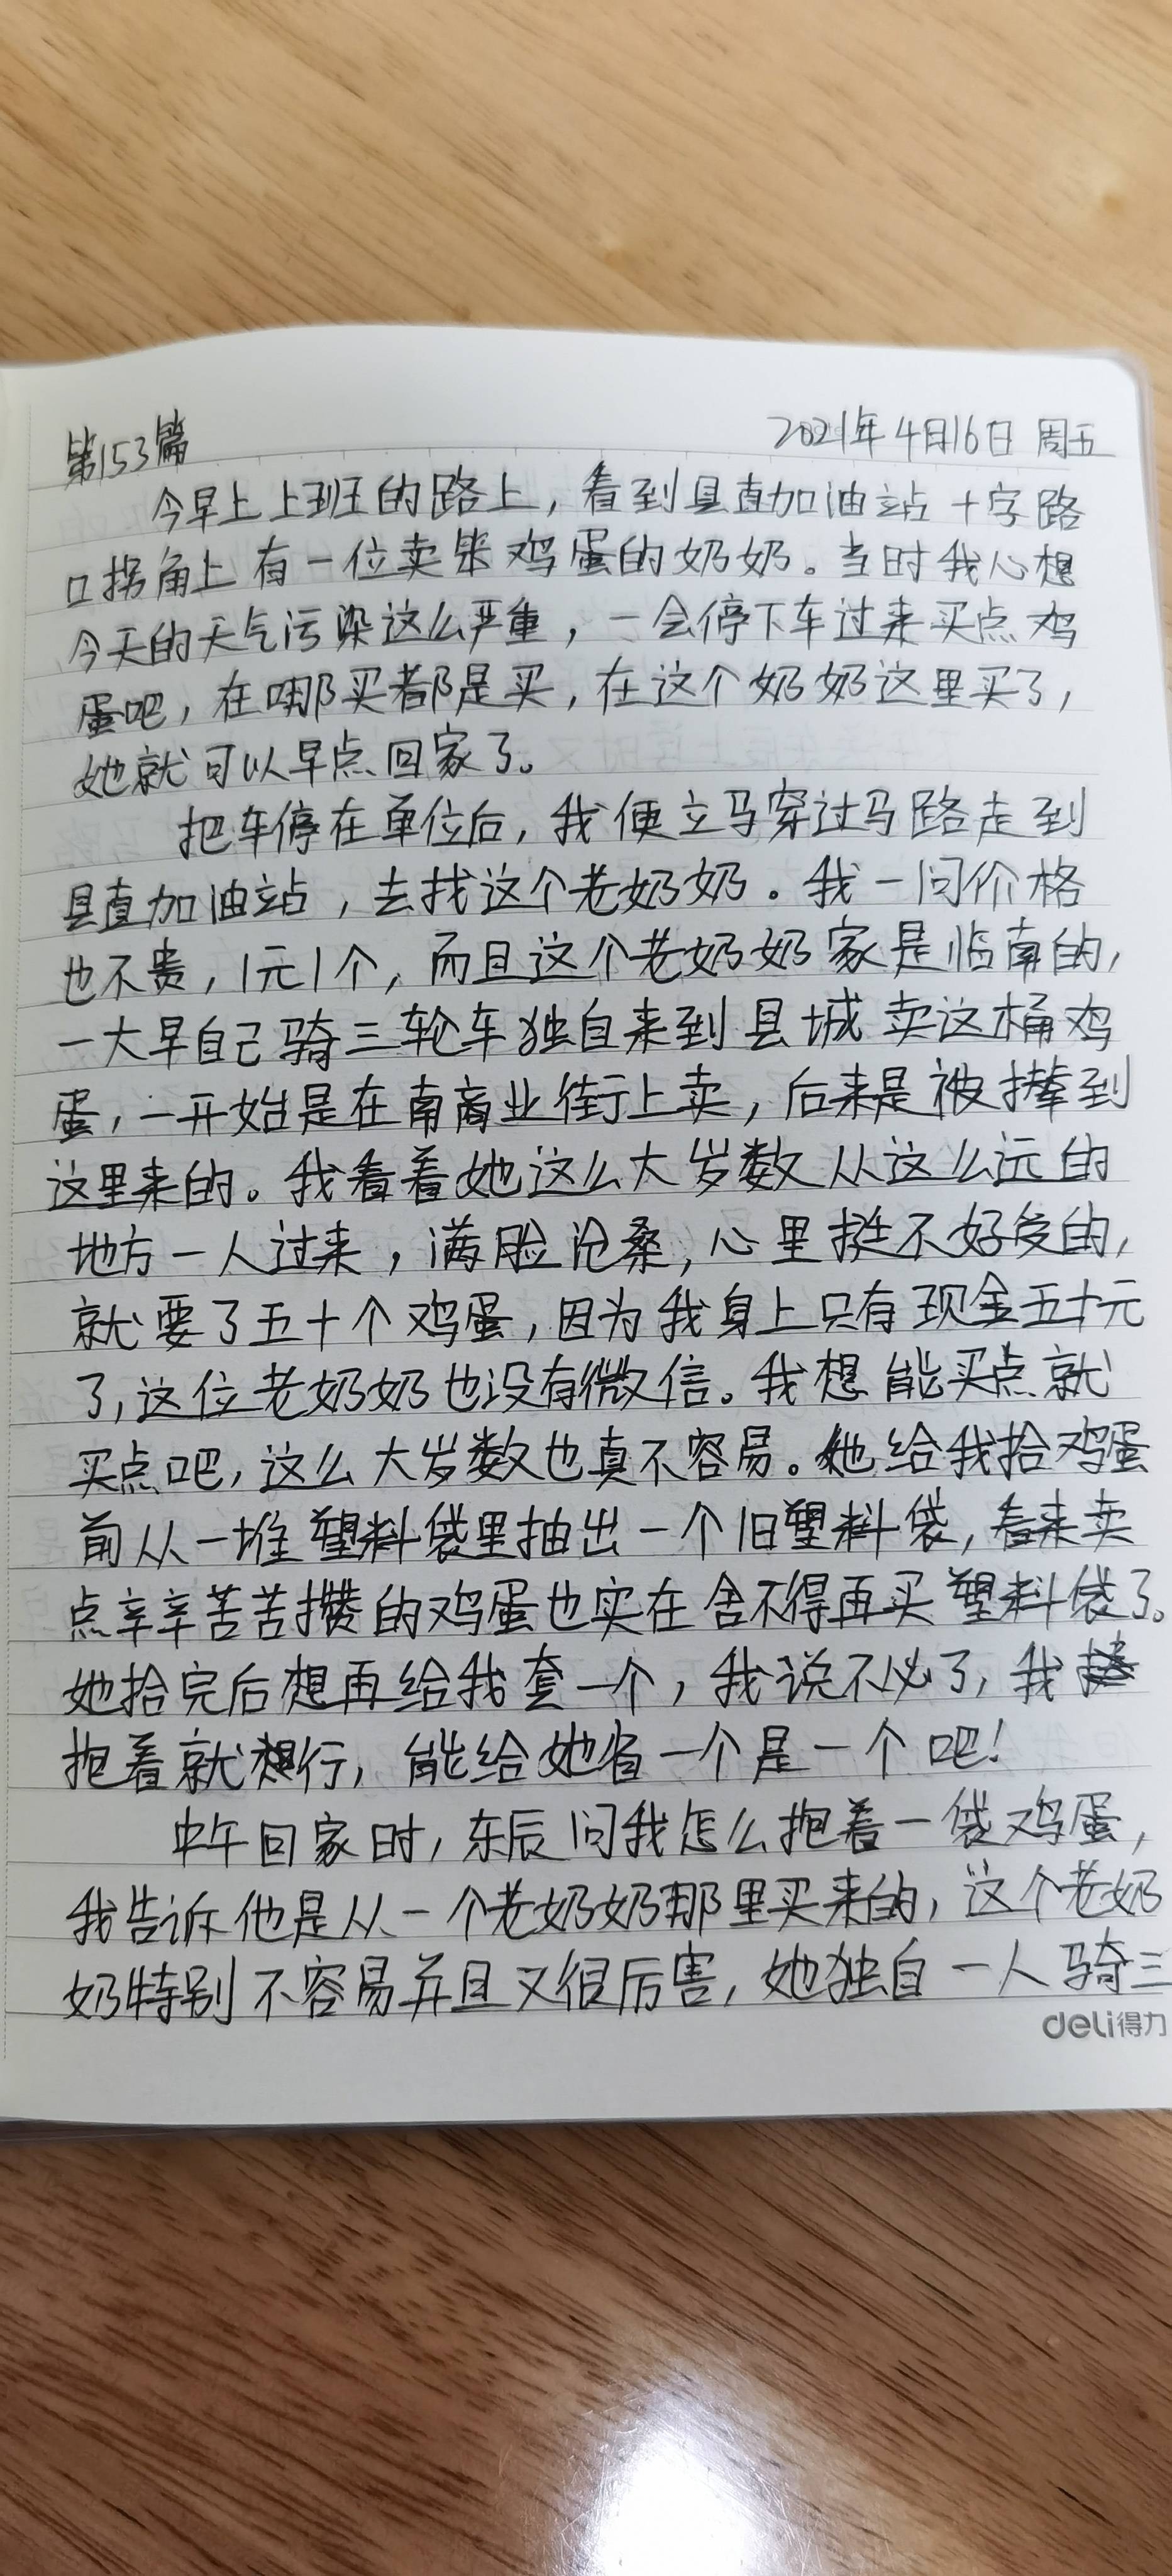 第153篇 2021年4月16日 周五
今早上上班的路上，看到县直加油站十字路
口拐角上有一位卖笨鸡蛋的奶奶。当时我心想
今天的天气污染这么严重，一会停下车过来买点鸡
蛋吧，在哪买都是买，在这个奶奶这里买了，
她就可以早点回家了。
把车停在单位后，我便立马穿过马路走到
县直加油站，去找这个老奶奶。我一问价格
也不贵，1元1个，而且这个老奶奶家是临南的，
一大早自己骑三轮车独自来到县城卖这桶鸡
蛋，一开始是在南商业街上卖，后来是被撵到
这里来的。我看着她这么大岁数从这么远的
地方一人过来，满脸沧桑，心里挺不好受的，
就要了五十个鸡蛋，因为我身上只有现金五十元
了，这位老奶奶也没有微信。我想能买点就
买点吧，这么大岁数也真不容易。她给我拾鸡蛋
前从一堆塑料袋里抽出一个旧塑料袋，看来卖
点辛辛苦苦攒的鸡蛋也实在舍不得再买塑料袋了。
她拾完后想再给我套一个，我说不必了，我
抱着就行，能给她省一个是一个吧！
中午回家时，东辰问我怎么抱着一袋鸡蛋，
我告诉他是从一个老奶奶那里买来的，这个老奶
奶特别不容易并且又很厉害，她独自一人骑三
deli得力